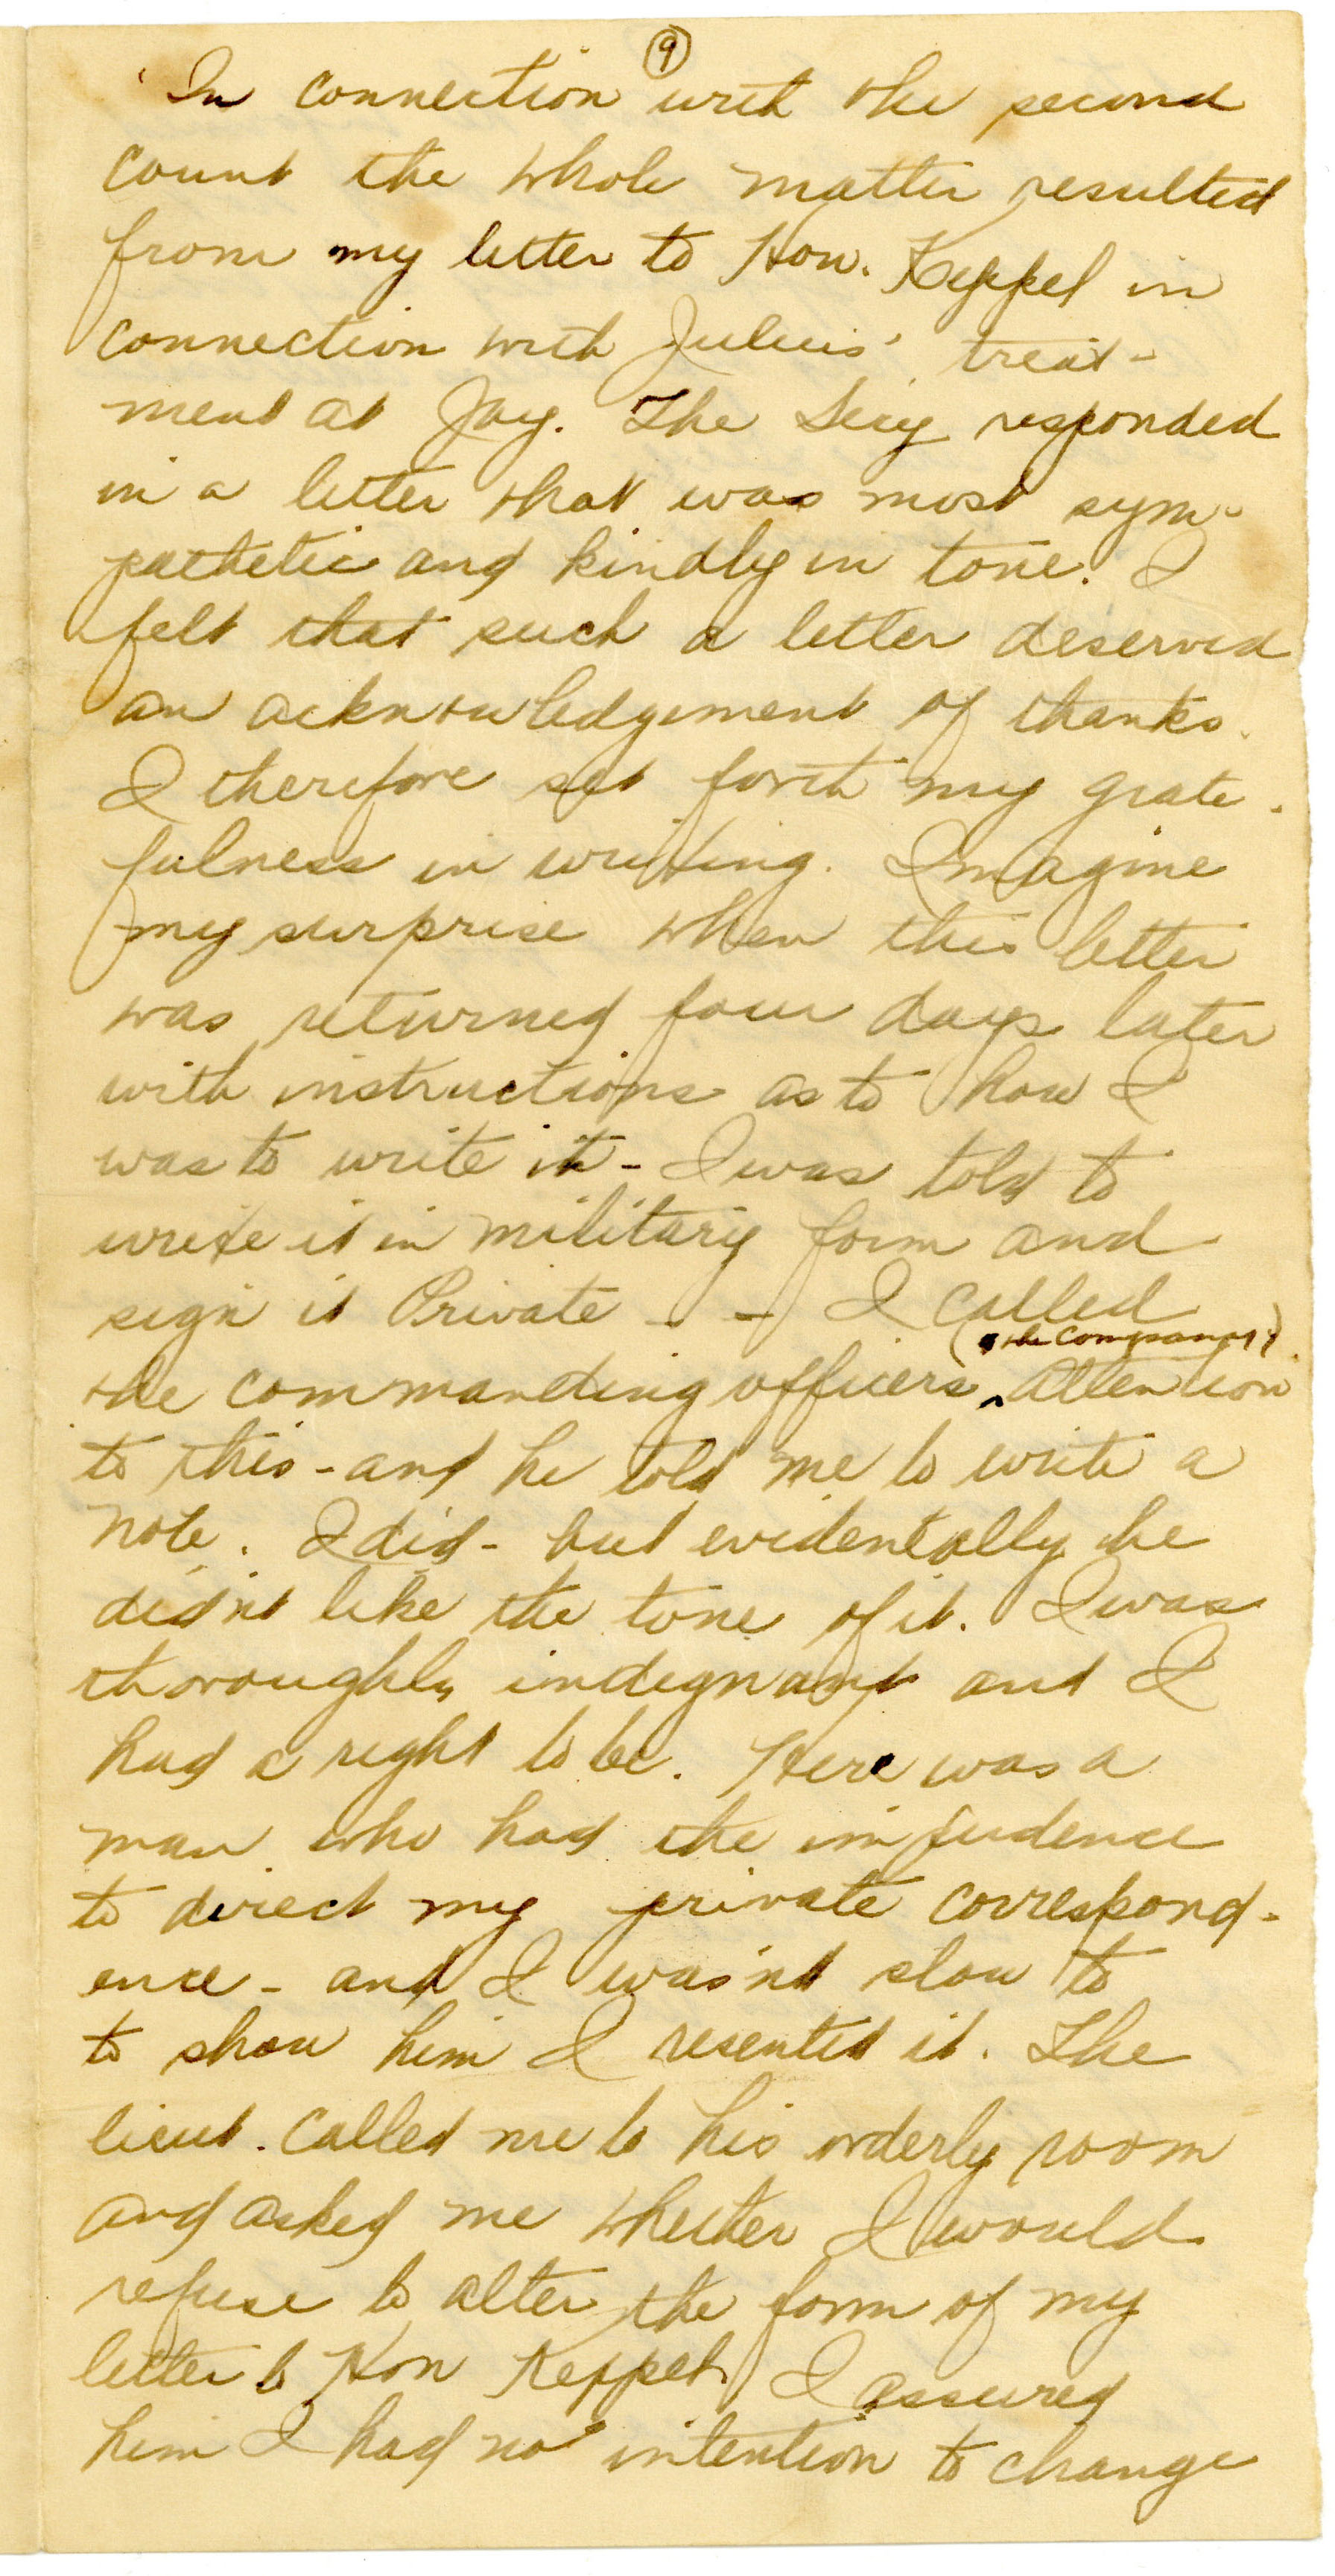 9
In connection with the second
count the whole matter resulted
from my letter to Hon. Keppel in
connection with Julius' treat-
ment at Jay. The Secy responded
in a letter that was most sym-
pathetic and kindly in tone. I
felt that such a letter deserved
an acknowledgement of thanks.
I therefore set forth my grate-
fulness in writing. Imagine
my surprise when this letter
was returned four days later
with instructions as to how I
was to write it - I was told to
write it in military form and
sign it Private - - I called
(the company)
the commanding officers attention
to this - and he told me to write a
note. I did - but evidentally he
didn't like the tone of it. I was
thoroughly indignant and I
had a right to be. Here was a
man who had the impudence
to direct my private correspond-
ence - and I wasn't slow to
to show him I resented it. The
lieut. called me to his orderly room
and asked me whether I would
refuse to alter the form of my
letter to Hon Keppel. I assured
him I had no intention to change